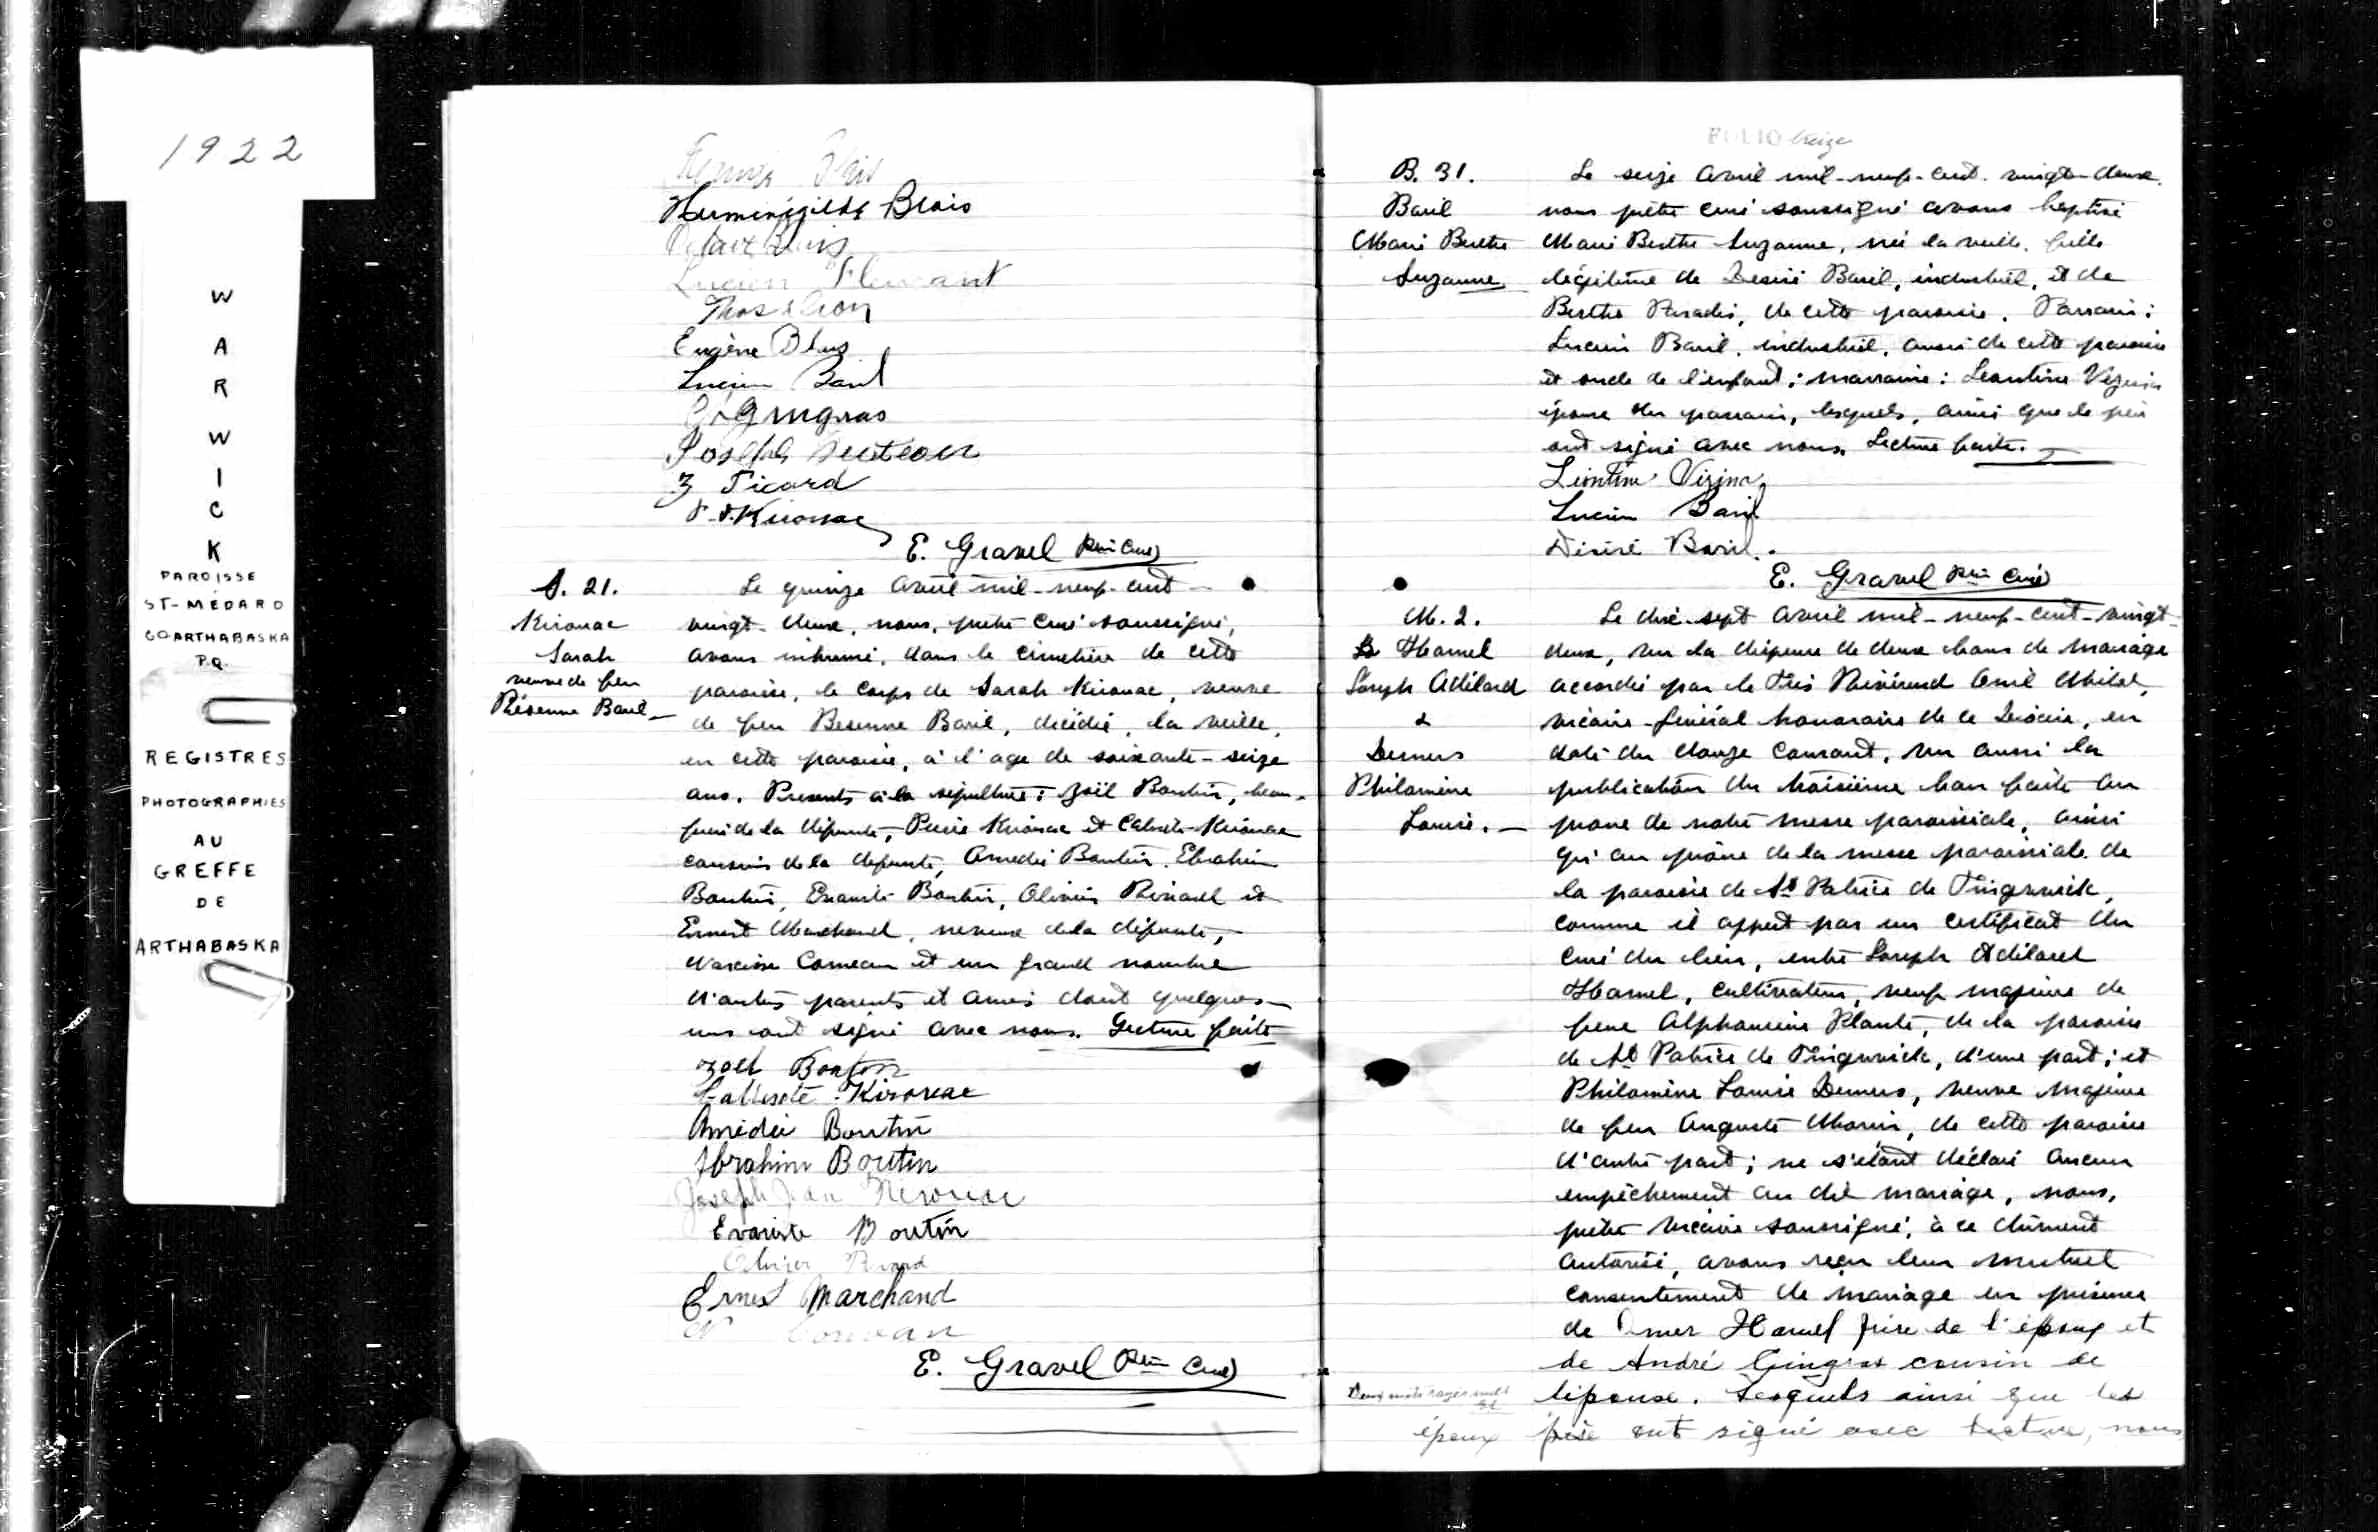 1922
W
A
R
W
I
C
K
PAROISSE
ST-MÉDARD
CO ARTHABASKA
P.Q.
REGISTRES
PHOTOGRAPHIÉS
AU
GREFFE
DE
ARTHABASKA
Blais
Herménégilde Blais
Lucien
Eugène Blais
Lucien Baril
Gingras
Joseph
Z Picard
Kirouac
E. Gravel Ptre Curé
S. 21.
Kirouac
Sarah
veuve de feu
Baril
Le quinze avril mil-neuf-cent
vingt-deux, nous, prêtre curé soussigné,
avons inhumé, dans le cimetière de cette
paroisse, le corps de Sarah Kirouac, veuve
de feu Baril, décédée, la veille,
en cette paroisse, à l'age de soixante-seize
ans. Présents à la sépulture: Zoël Boutin, beau-
frère de la défunte, Pierre Kirouac et Calixte Kirouac
cousins de la défunte, Amédée Boutin, Ebrahim
Boutin, Evariste Boutin, Olivier Rivard et
Ernest Marchand, neveux de la défunte,
Narcisse Comeau et un grand nombre
d'autres parents et amis dont quelques-
uns ont signé avec nous. Lecture faite
Zoel Boutin
Calixte Kirouac
Amédée Boutin
Ibrahim Boutin
Joseph Jean Kirouac
Evariste Boutin
Olivier Rivard
Ernest Marchand
N
E. Gravel Ptre Curé
FOLIO treize
B. 31.
Baril
Marie Berthe
Suzanne
Le seize avril mil-neuf-cent-vingt-deux,
nous prêtre curé soussigné avons baptisé
Marie Berthe Suzanne, née la veille, fille
légitime de Desiré Baril, industriel, et de
Berthe Paradis, de cette paroisse. Parrain:
Lucien Baril, industriel, aussi de cette paroisse
et oncle de l'enfant; marraine: Léontine Vézina
épouse du parrain, lesquels, ainsi que le père
ont signé avec nous. Lecture faite.
Léontine Vézina
Lucien Baril
Désiré Baril
E. Gravel Ptre Curé
M. 2.
Hamel
Joseph Adélard
&
Demers
Philomène
Louise.
Le dix-sept avril mil-neuf-cent-vingt-
deux, vu la dispense de deux bans de mariage
accordée par le Très Révérend
vicaire-général honoraire de ce Diocèse, en
date du douze courant, vu aussi la
publication du troisième ban faite au
prone de notre messe paroissiale, ainsi
qu'au prône de la messe paroissiale de
la paroisse de St Patrice de Tingwick,
comme il appert par un certificat du
curé du lieu, entre Joseph Adélard
Hamel, cultivateur, veuf majeur de
feue Alphonsine Plante, de la paroisse
de St Patrice de Tingwick, d'une part; et
Philomène Louise Demers, veuve majeure
de feu Auguste Morin, de cette paroisse
d'autre part; ne s'étant déclaré aucun
empêchement au dit mariage, nous,
prêtre vicaire soussigné, à ce dûment
autorisé, avons reçu leur mutuel
consentement de mariage en présence
de Omer Hamel frère de l'époux et
de André Gingras cousin de
l'épouse. Lesquels ainsi que les
Deux mots rayés nuls
époux
ont signé avec lecture, nous